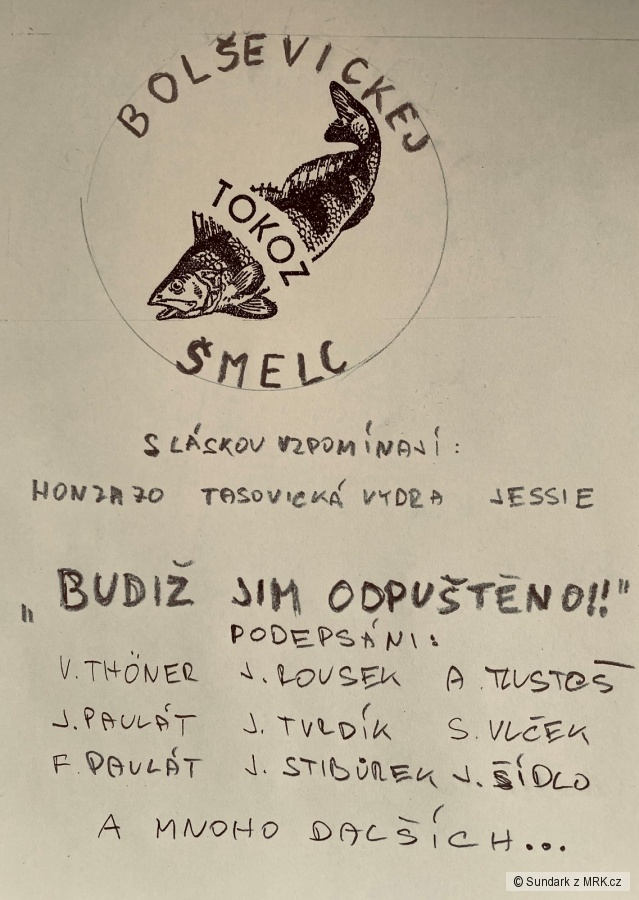 BOLŠEVICKEJ
TOKOZ
ŠMELC
S LÁSKOU VZPOMÍNAJÍ:
HONZA70 TASOVICKÁ VYDRA JESSIE
„BUDIŽ JIM ODPUŠTĚNO!!"
PODEPSÁNI:
V. THÖNER J. ROUSEK A. TLUSTOŠ
J. PAULÁT J. TVRDÍK S. VLČEK
F. PAULÁT J. STIBŮREK J. ŠÍDLO
A MNOHO DALŠÍCH...
© Sundark z MRK.cz